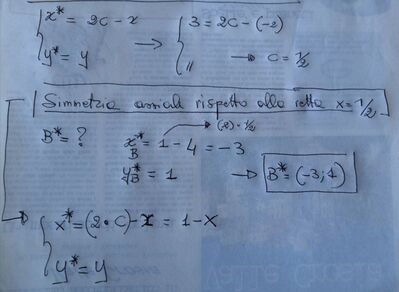 x* = 2c - x
y* = y
→
3 = 2c - (-2)
//
→ c = 1/2
Simmetria assiale rispetto alla retta x = 1/2
B* = ?
x*B = 1 - 4 = -3
(2) · 1/2
y*B = 1
→ B* = (-3; 1)
x* = (2 · c) - x = 1 - x
y* = y